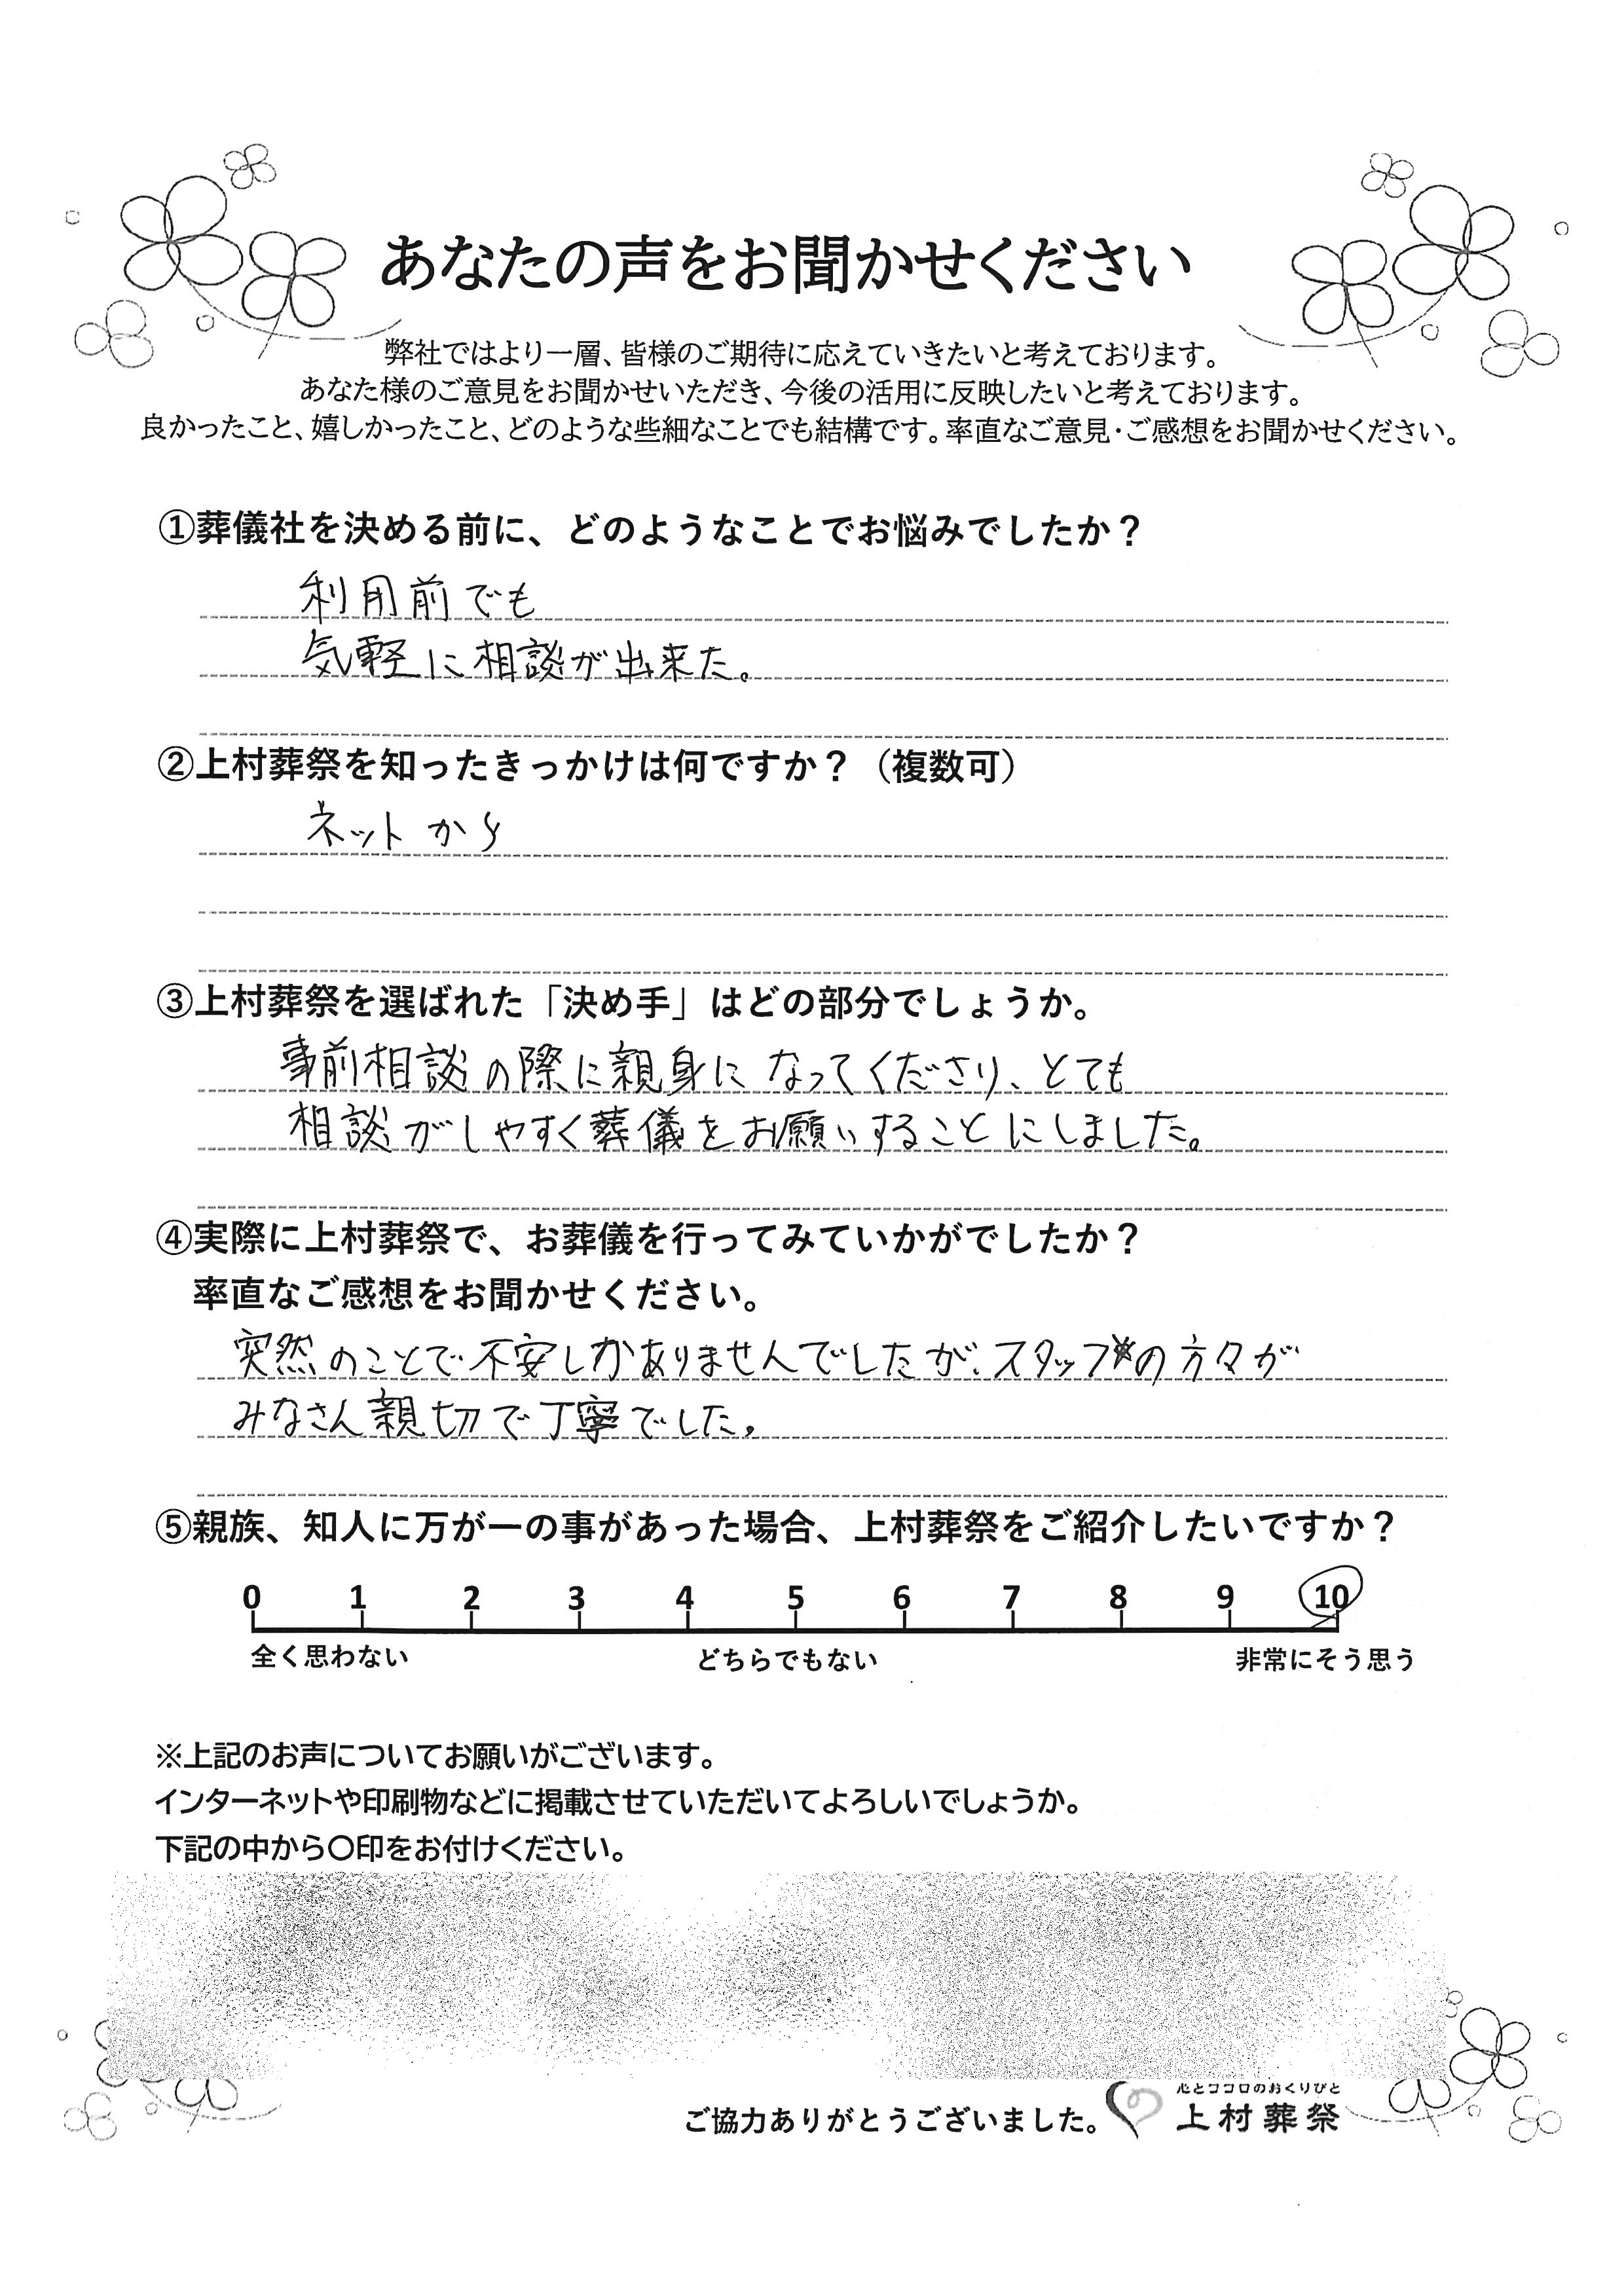 あなたの声をお聞かせください
弊社ではより一層、皆様のご期待に応えていきたいと考えております。
あなた様のご意見をお聞かせいただき、今後の活用に反映したいと考えております。
良かったこと、嬉しかったこと、どのような些細なことでも結構です。率直なご意見・ご感想をお聞かせください。
①葬儀社を決める前に、どのようなことでお悩みでしたか？
利用前でも
気軽に相談が出来た。
②上村葬祭を知ったきっかけは何ですか？（複数可）
ネットから
③上村葬祭を選ばれた「決め手」はどの部分でしょうか。
事前相談の際に親身になってくださり、とても
相談がしやすく葬儀をお願いすることにしました。
④実際に上村葬祭で、お葬儀を行ってみていかがでしたか？
率直なご感想をお聞かせください。
突然のことで不安しかありませんでしたが、スタッフの方々が
みなさん親切で丁寧でした。
⑤親族、知人に万が一の事があった場合、上村葬祭をご紹介したいですか？
0 1 2 3 4 5 6 7 8 9 10
全く思わない どちらでもない 非常にそう思う
※上記のお声についてお願いがございます。
インターネットや印刷物などに掲載させていただいてよろしいでしょうか。
下記の中から〇印をお付けください。
心とココロのおくりびと
ご協力ありがとうございました。 上村葬祭